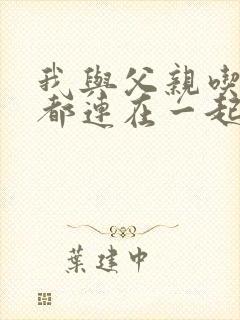 我與父親喫
都連在一起
葉建中